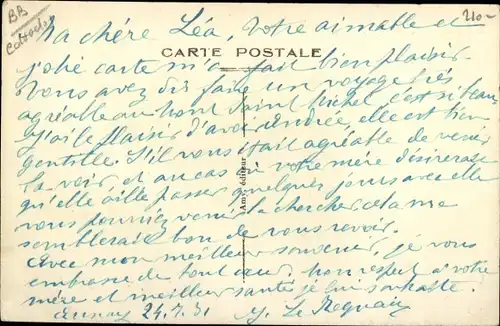 BB
Calvados
210-
Ma chère Léa, Votre aimable et
CARTE POSTALE
jolie carte m'a fait bien plaisir.
Vous avez dû faire un voyage très
agréable au Mont Saint Michel, c'est si beau
J'ai le plaisir d'avoir Andrée, elle est bien
gentille. S'il vous était agréable de venir
la voir, et au cas où votre mère désirerait
qu'elle aille passer quelques jours avec elle
vous pourriez venir la chercher cela me
semblerait bon de vous revoir.
Avec mon meilleur souvenir, je vous
embrasse de tout cœur, mon respect à votre
mère et meilleure santé je lui souhaite.
Aunay 24.7.31 Y. Le
Amy, éditeur